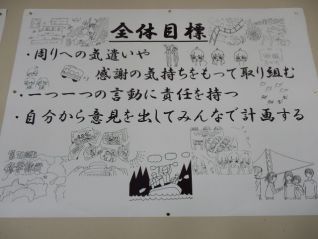 全体目標
・周りへの気遣いや
感謝の気持ちをもって取り組む
・一つ一つの言動に責任を持つ
・自分から意見を出してみんなで計画する